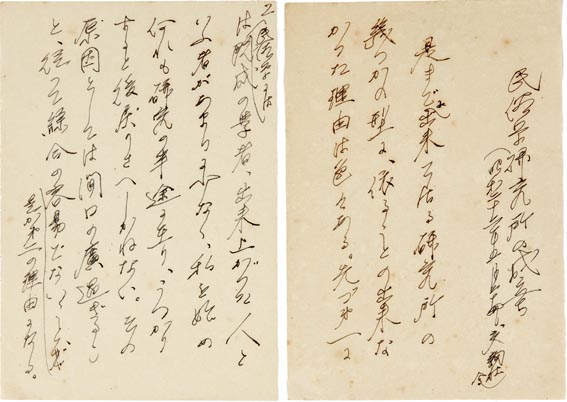 民俗学研究所の成立ち
是まで出来て居る研究所の
幾つかの型に、依ることの出来な
かつた理由は色々ある。先づ第一に
2
民俗学には
は既成の学者、出来上がつた人と
いふ者があまり少なく、私を始め
何れも研究の半途に在り、うつかり
すると後戻りさへしかねない。その
原因としては間口の廣過ぎること
と、従つて綜合の容易でないことが
是が第一の理由になる。